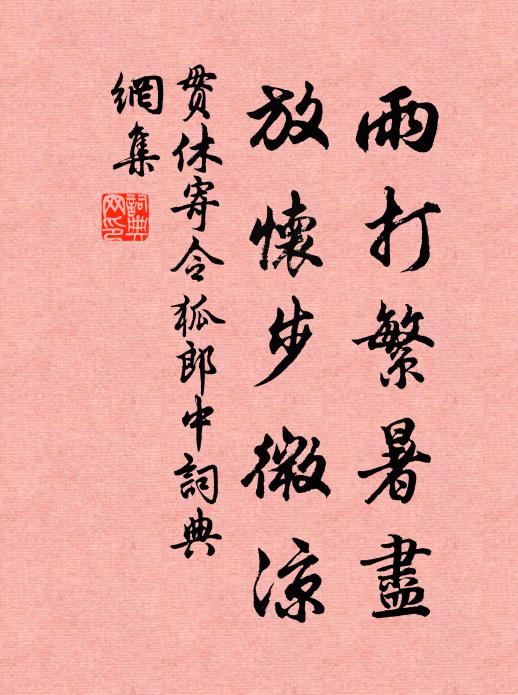 雨打繁暑盡
放懷步微涼
貫休寄令狐郎中詞典
網集
詞典
網印